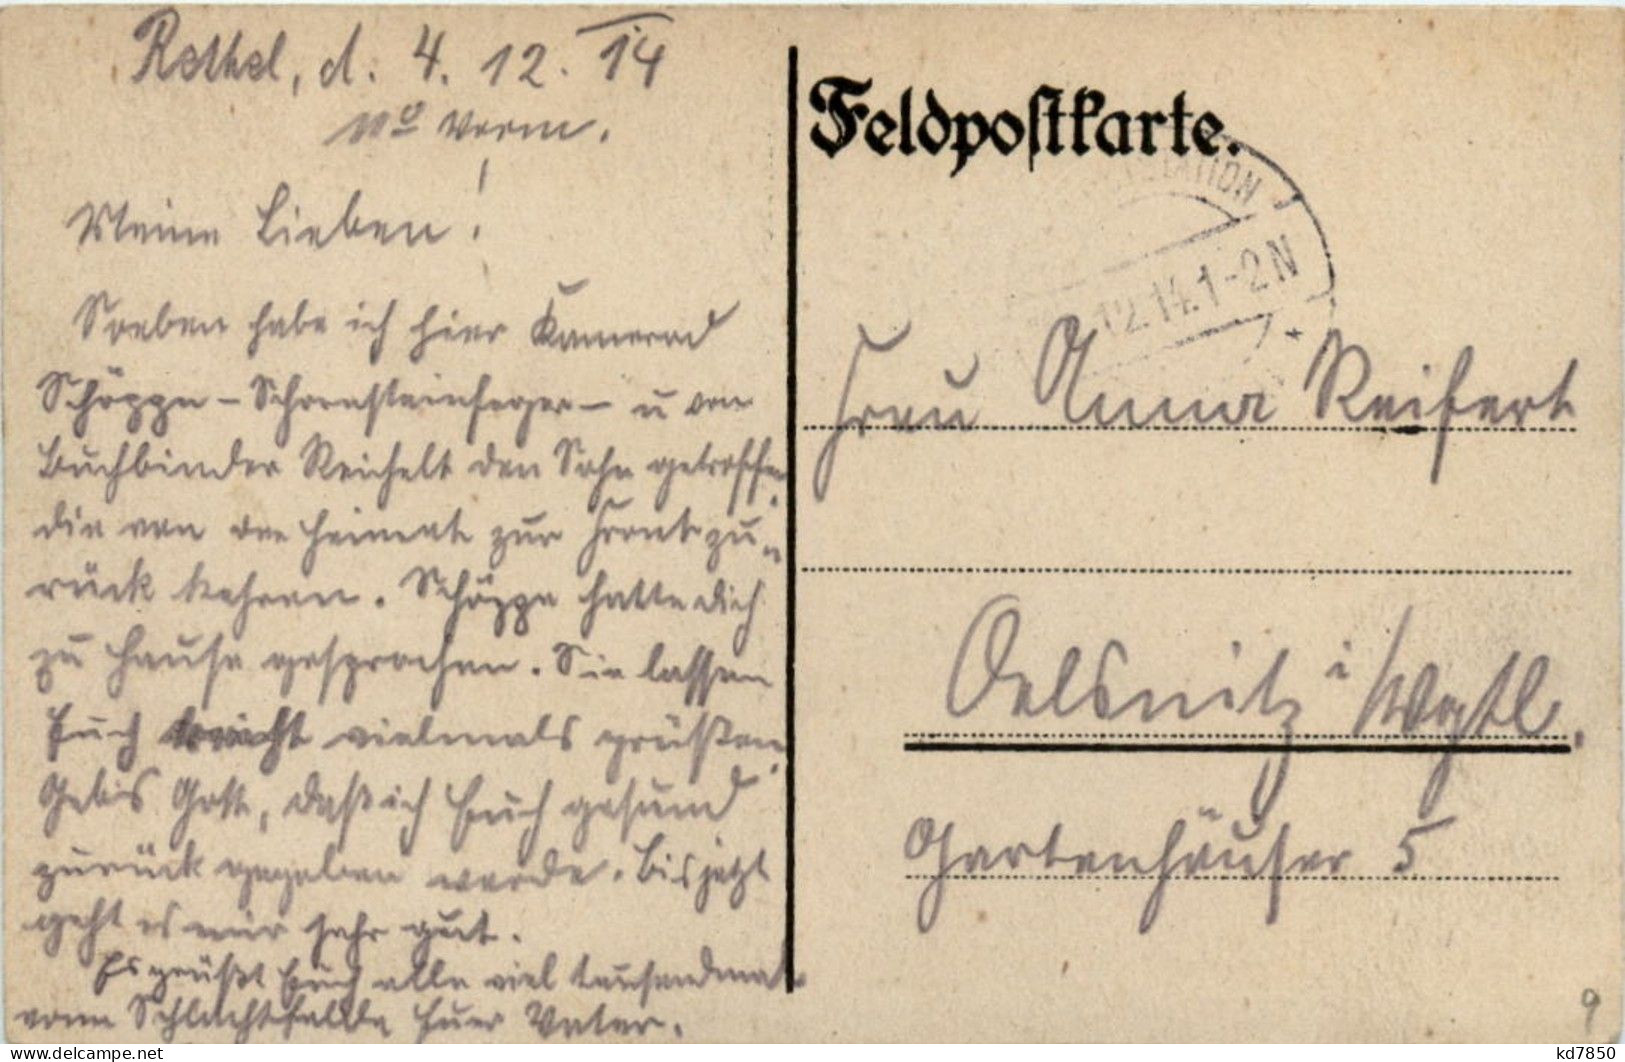 Rethel, d. 4. 12. 14
11⁰ Vorm.
Meine Lieben!
Soeben habe ich hier Kamerad
Schöppe - Schornsteinfeger - u von
Buchbinder Reichelt den Sohn getroffen,
die von der Heimat zur Front zu-
rück kehren. Schöppe hatte dich
zu Hause gesprochen. Sie lassen
Euch vielmals grüßen.
Gebis Gott, daß ich Euch gesund
zurück gegeben werde. Bis jetzt
geht es mir sehr gut.
Es grüßt Euch alle viel tausendmal
vom Schlachtfelde Euer Vater.
Feldpostkarte.
STATION
12.14.1-2N
Frau Anna Reifert
Oelsnitz i/Vgtl.
Gartenhäuser 5
9
kd7850